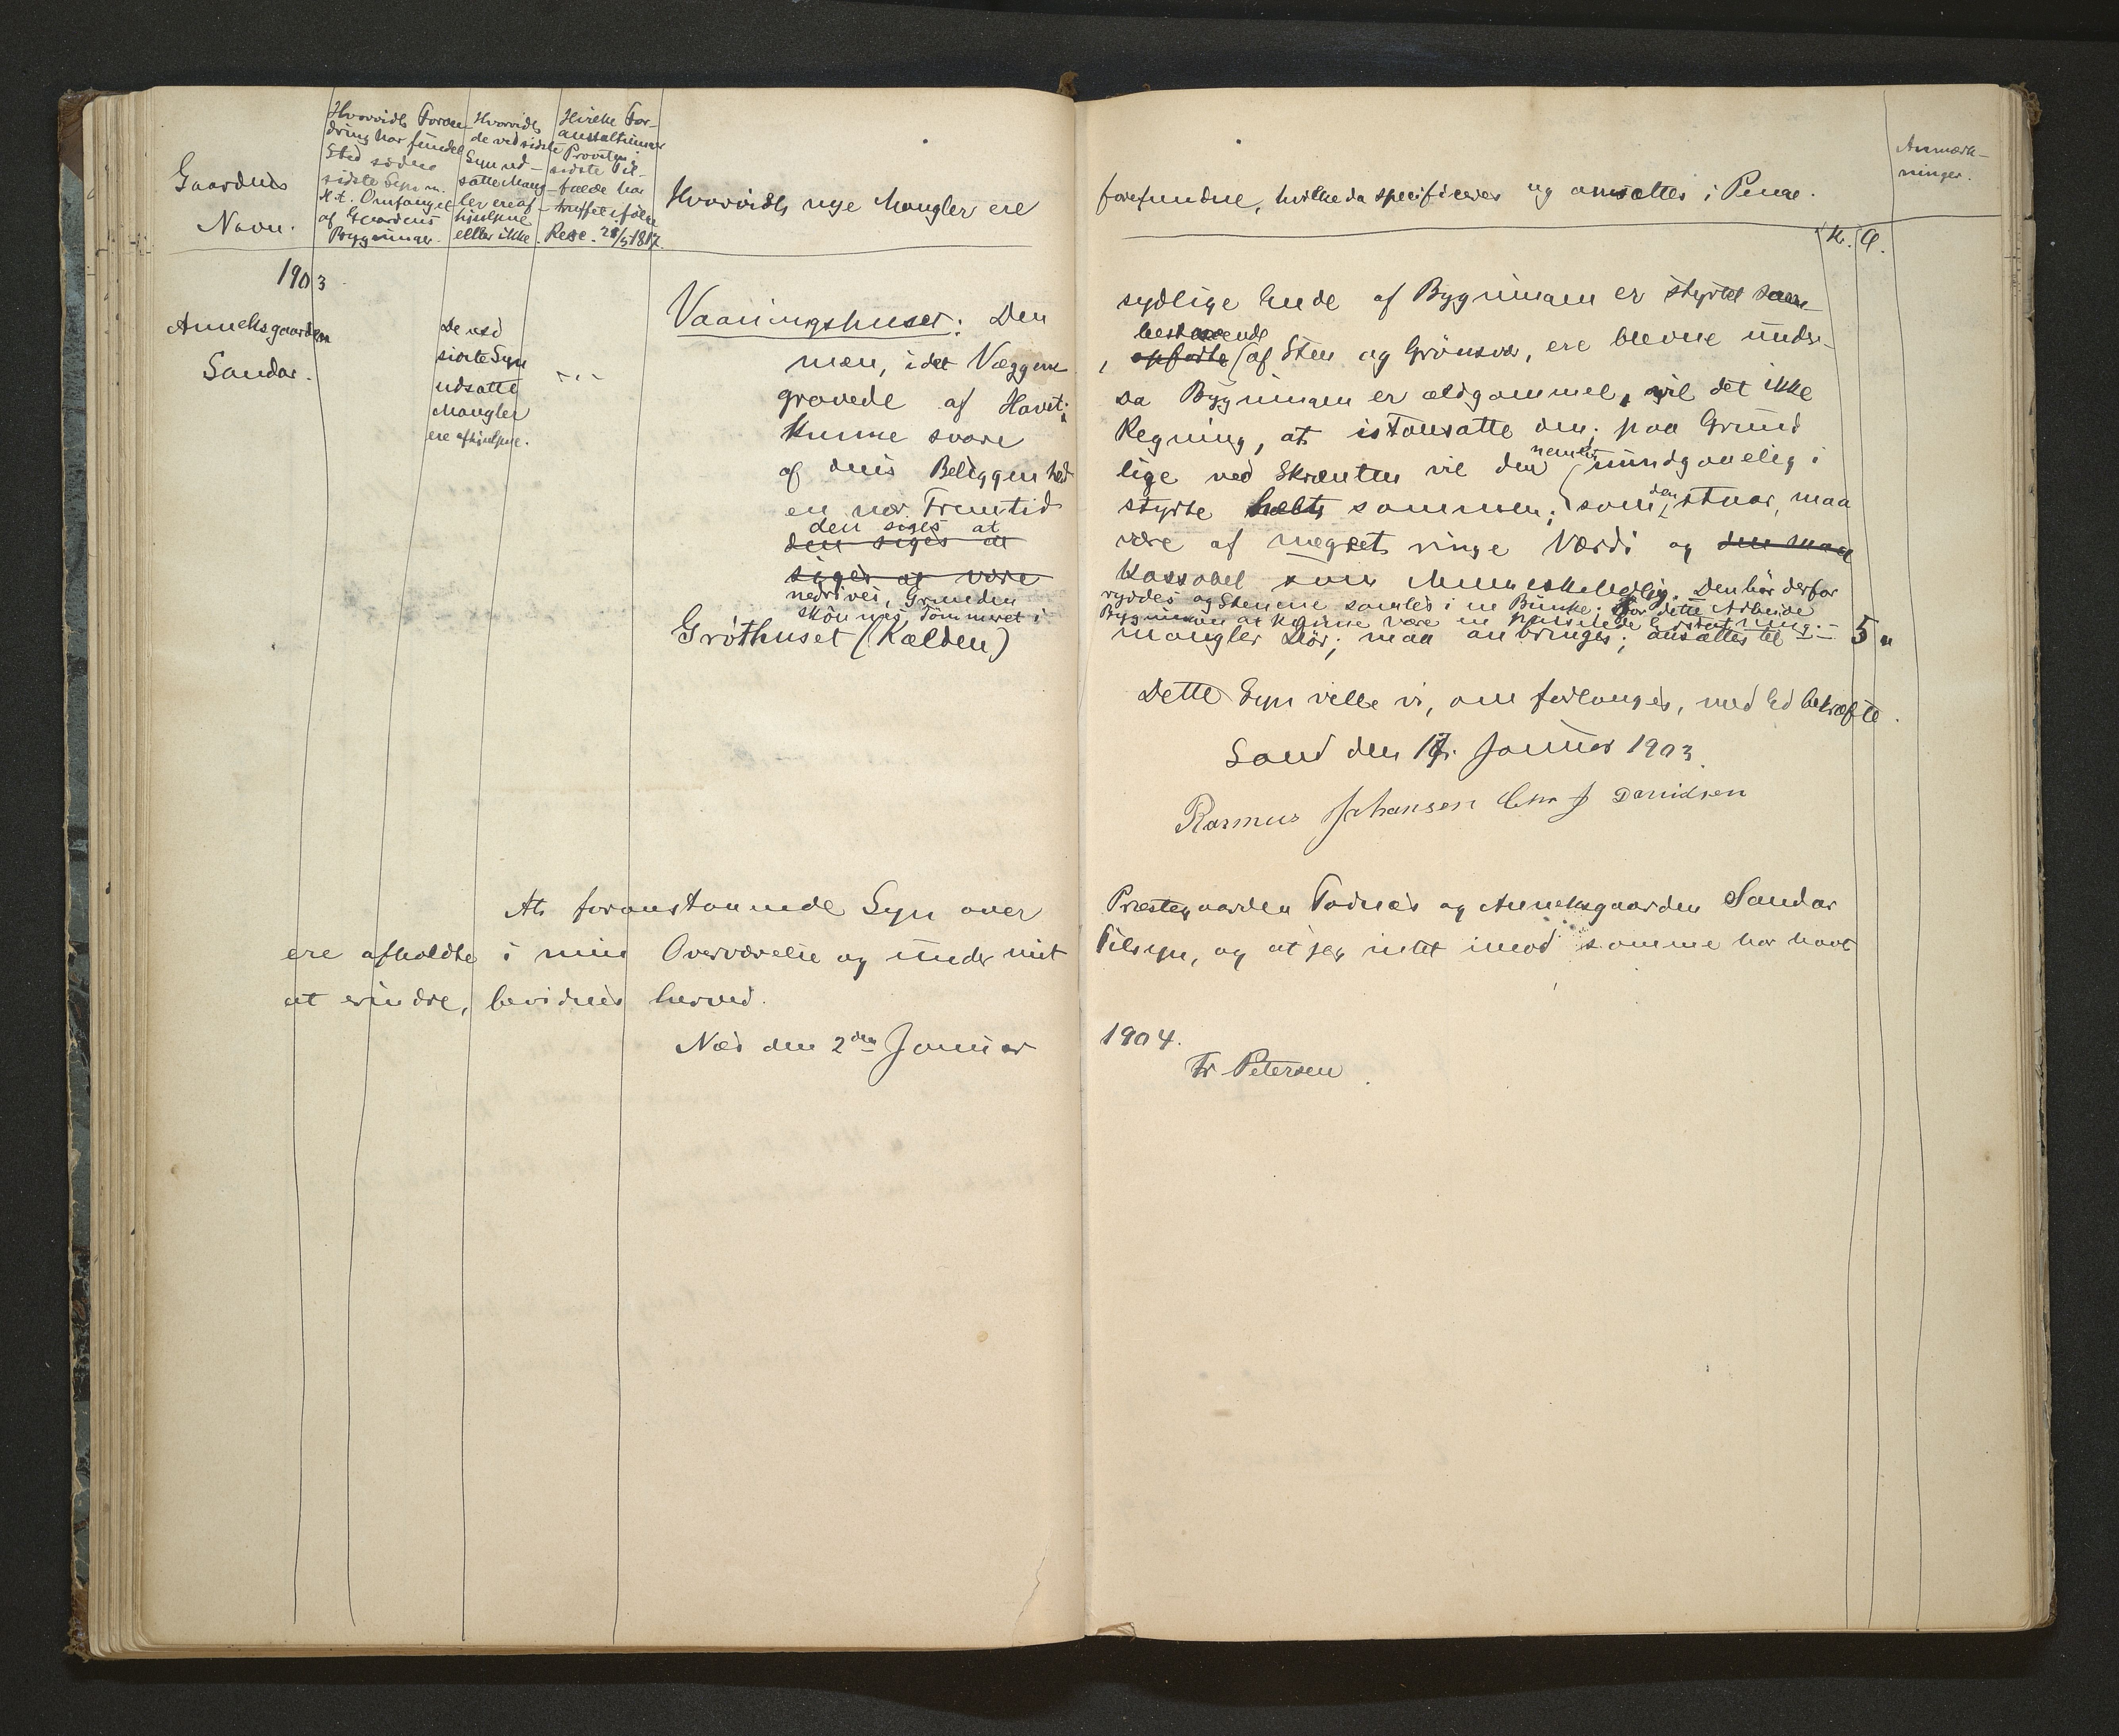 Gaardens
Navn.
Hvorvidt Foran-
dring har fundet
Sted siden
sidste Syn m.
H.t. Omfanget
af Gaardens
Bygninger.
Hvorvidt
de ved sidste
Syn ud-
satte Mang-
ler ere af-
hjulpne
eller ikke.
Hvilke For-
anstaltninger
Provsten i
sidste Til-
fælde har
truffet ifølge
Resc. 28/5 1817.
Hvorvidt nye Mangler ere forefundne, hvilke da specificeres og ansættes i Penge.
Kr. Ø.
Anmærk-
ninger.
1903
Anneksgaarden
Sandar.
De ved
sidste Syn
udsatte
Mangler
ere afhjulpne.
Vaaningshuset: Den sydlige Ende af Bygningen er styrtet sam-
bestaaende
men, idet Væggene, opførte af Sten og Grönsvær, ere blevne under-
gravede af Havet; da Bygningen er ældgammel, vil det ikke
kunne svare Regning, at istandsætte den; paa Grund
nemlig
af dens Beliggenhed lige ved Skrænten vil den uundgaaelig i
den
en nær Fremtid styrte helt sammen; som staar, maa
den siges at
den siges at være af meget ringe Værdi og den maa
siges at være kassabel som Menneskebolig. Den bör derfor
nedrives, Grunden ryddes og Stenene samles i en Bunke; for dette Arbeide
skönnes Tömmeret i Bygningen at kunne være en passende Erstatning.
Gröthuset (Kælden) mangler Dör; maa anbringes; ansættes til 5 "
Dette Syn ville vi, om forlanges, med Ed bekræfte.
Sand den 17. Januar 1903.
Rasmus Johansen Chr J Davidsen
At foranstaaende Syn over Præstegaarden Todnæs og Anneksgaarden Sandar
ere afholdte i min Overværelse og under mit Tilsyn, og at jeg intet imod samme har havt
at erindre, bevidnes herved.
Næs den 2den Januar 1904.
Fr Petersen